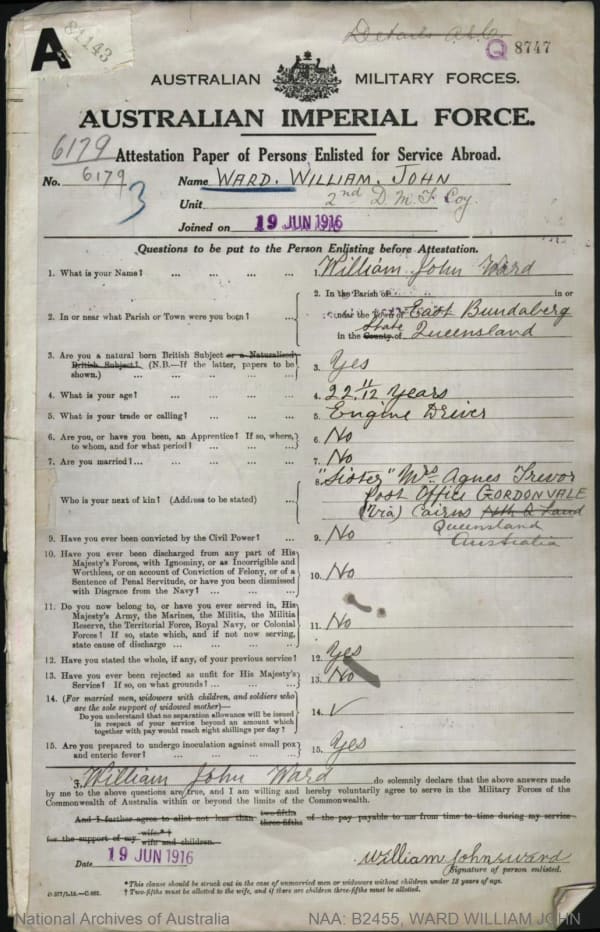 A
84143
Details A.S.C.
Q 8747
AUSTRALIAN MILITARY FORCES.
AUSTRALIAN IMPERIAL FORCE.
6179
Attestation Paper of Persons Enlisted for Service Abroad.
No. 6179 Name WARD. WILLIAM. JOHN
3
Unit 2nd D M T Coy.
Joined on 19 JUN 1916
Questions to be put to the Person Enlisting before Attestation.
1. What is your Name? ... ... ... ... 1. William John Ward
2. In or near what Parish or Town were you born? ... 2. In the Parish of in or
near the Town of East Bundaberg
in the County of State Queensland
3. Are you a natural born British Subject or a Naturalised
British Subject? (N.B.—If the latter, papers to be
shown.) ... ... ... ... 3. Yes
4. What is your age? ... ... ... ... 4. 22 11/12 Years
5. What is your trade or calling? ... ... ... 5. Engine Driver
6. Are you, or have you been, an Apprentice? If so, where,
to whom, and for what period? ... ... ... 6. No
7. Are you married? ... ... ... ... 7. No
8. "Sister" Mrs Agnes Trevor
Post Office GORDONVALE
Who is your next of kin? (Address to be stated) ... (Via) Cairns Nth Q Land
Queensland
Australia
9. Have you ever been convicted by the Civil Power? ... 9. No
10. Have you ever been discharged from any part of His
Majesty's Forces, with Ignominy, or as Incorrigible and
Worthless, or on account of Conviction of Felony, or of a
Sentence of Penal Servitude, or have you been dismissed
with Disgrace from the Navy? ... ... ... 10. No
11. Do you now belong to, or have you ever served in, His
Majesty's Army, the Marines, the Militia, the Militia
Reserve, the Territorial Force, Royal Navy, or Colonial
Forces? If so, state which, and if not now serving,
state cause of discharge ... ... ... 11. No
12. Have you stated the whole, if any, of your previous service? 12. Yes
13. Have you ever been rejected as unfit for His Majesty's
Service? If so, on what grounds? ... ... ... 13. No
14. (For married men, widowers with children, and soldiers who
are the sole support of widowed mother)—
Do you understand that no separation allowance will be issued
in respect of your service beyond an amount which
together with pay would reach eight shillings per day? 14. ✓
15. Are you prepared to undergo inoculation against small pox
and enteric fever? ... ... ... ... 15. Yes
I, William John Ward do solemnly declare that the above answers made
by me to the above questions are true, and I am willing and hereby voluntarily agree to serve in the Military Forces of the
Commonwealth of Australia within or beyond the limits of the Commonwealth.
And I further agree to allot not less than two-fifths three-fifths of the pay payable to me from time to time during my service
for the support of my wife.*† wife and children.
Date 19 JUN 1916 William John Ward
Signature of person enlisted.
*This clause should be struck out in the case of unmarried men or widowers without children under 18 years of age.
† Two-fifths must be allotted to the wife, and if there are children three-fifths must be allotted.
National Archives of Australia NAA: B2455, WARD WILLIAM JOHN